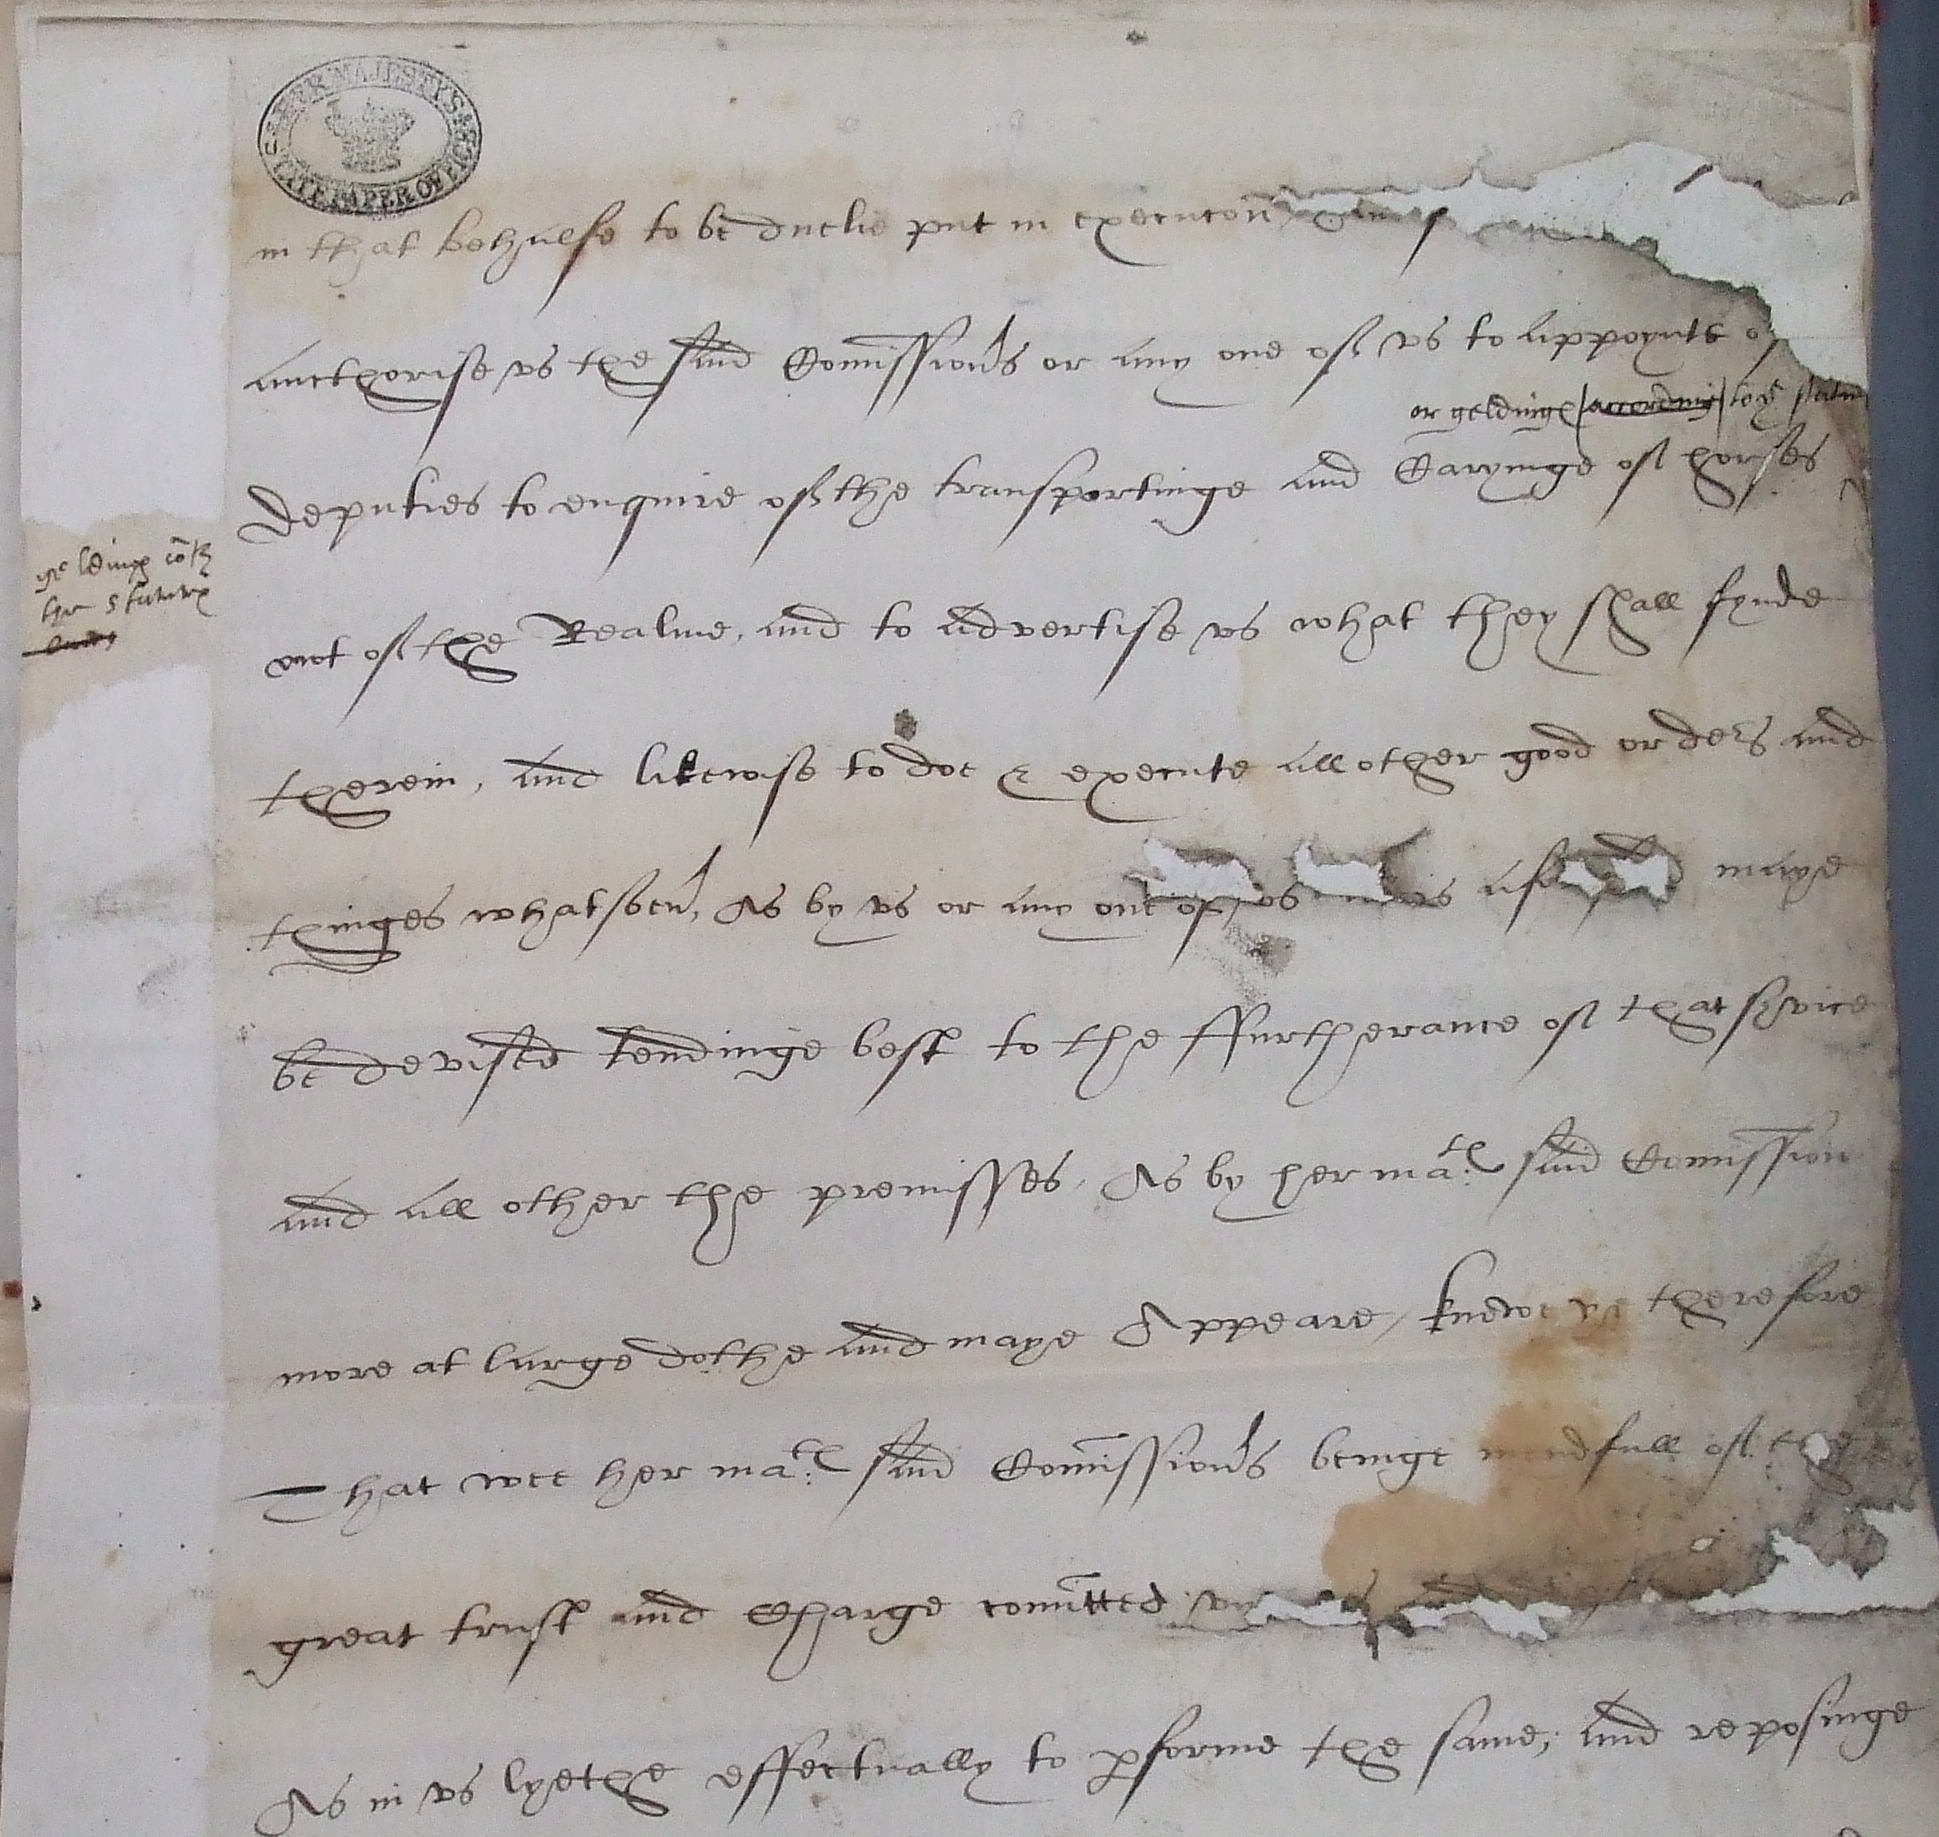 HER MAJESTY'S STATE PAPER OFFICE
in that behalfe to be duelie put in execucon
aucthorise vs the said Comissioners or any one of vs to appoynte
or geldinges according to ye statu
deputies to enquire of the transportinge and Caryinge of horses
geldinges
the statutes
out of the Realme, and to advertise vs what they shall fynde
therein, and likewise to doe & execute all other good orders and
thinges whatsoeuer, As by vs or any one of vs maye
be devised tendinge best to the ffurtherance of that service
and all other the premisses, As by her matᵉ said Comission
more at large dothe and maye Appeare / knowe ye therefore
That wee her matᵉ said Comissioners beinge mindfull of the
great trust and Charge comitted
As in vs lyethe effectually to performe the same, and reposinge